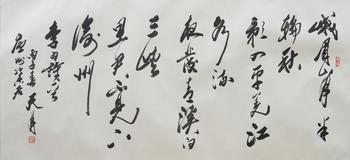 峨眉山月半
輪秋
影入平羌江
水流
夜發清溪向
三峽
思君不見下
渝州
李白詩